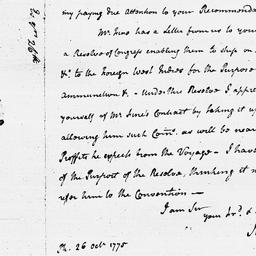 my paying due attention to your Recommenda
Mr. Sims has a Letter from us to your
a Resolve of Congress enabling them to ship on
&c. to the foreign West Indies for the Purpose
ammunition &. - Under this Resolve I appre
yourself of Mr. Sims's Contract by taking it up
allowing him such Coms. as will be near
Proffits he expects from the Voyage - I have
of the Purport of the Resolve, thinking it n
refer him to the Convention -
I am Sir
your
Ph. 26 Octr. 1775